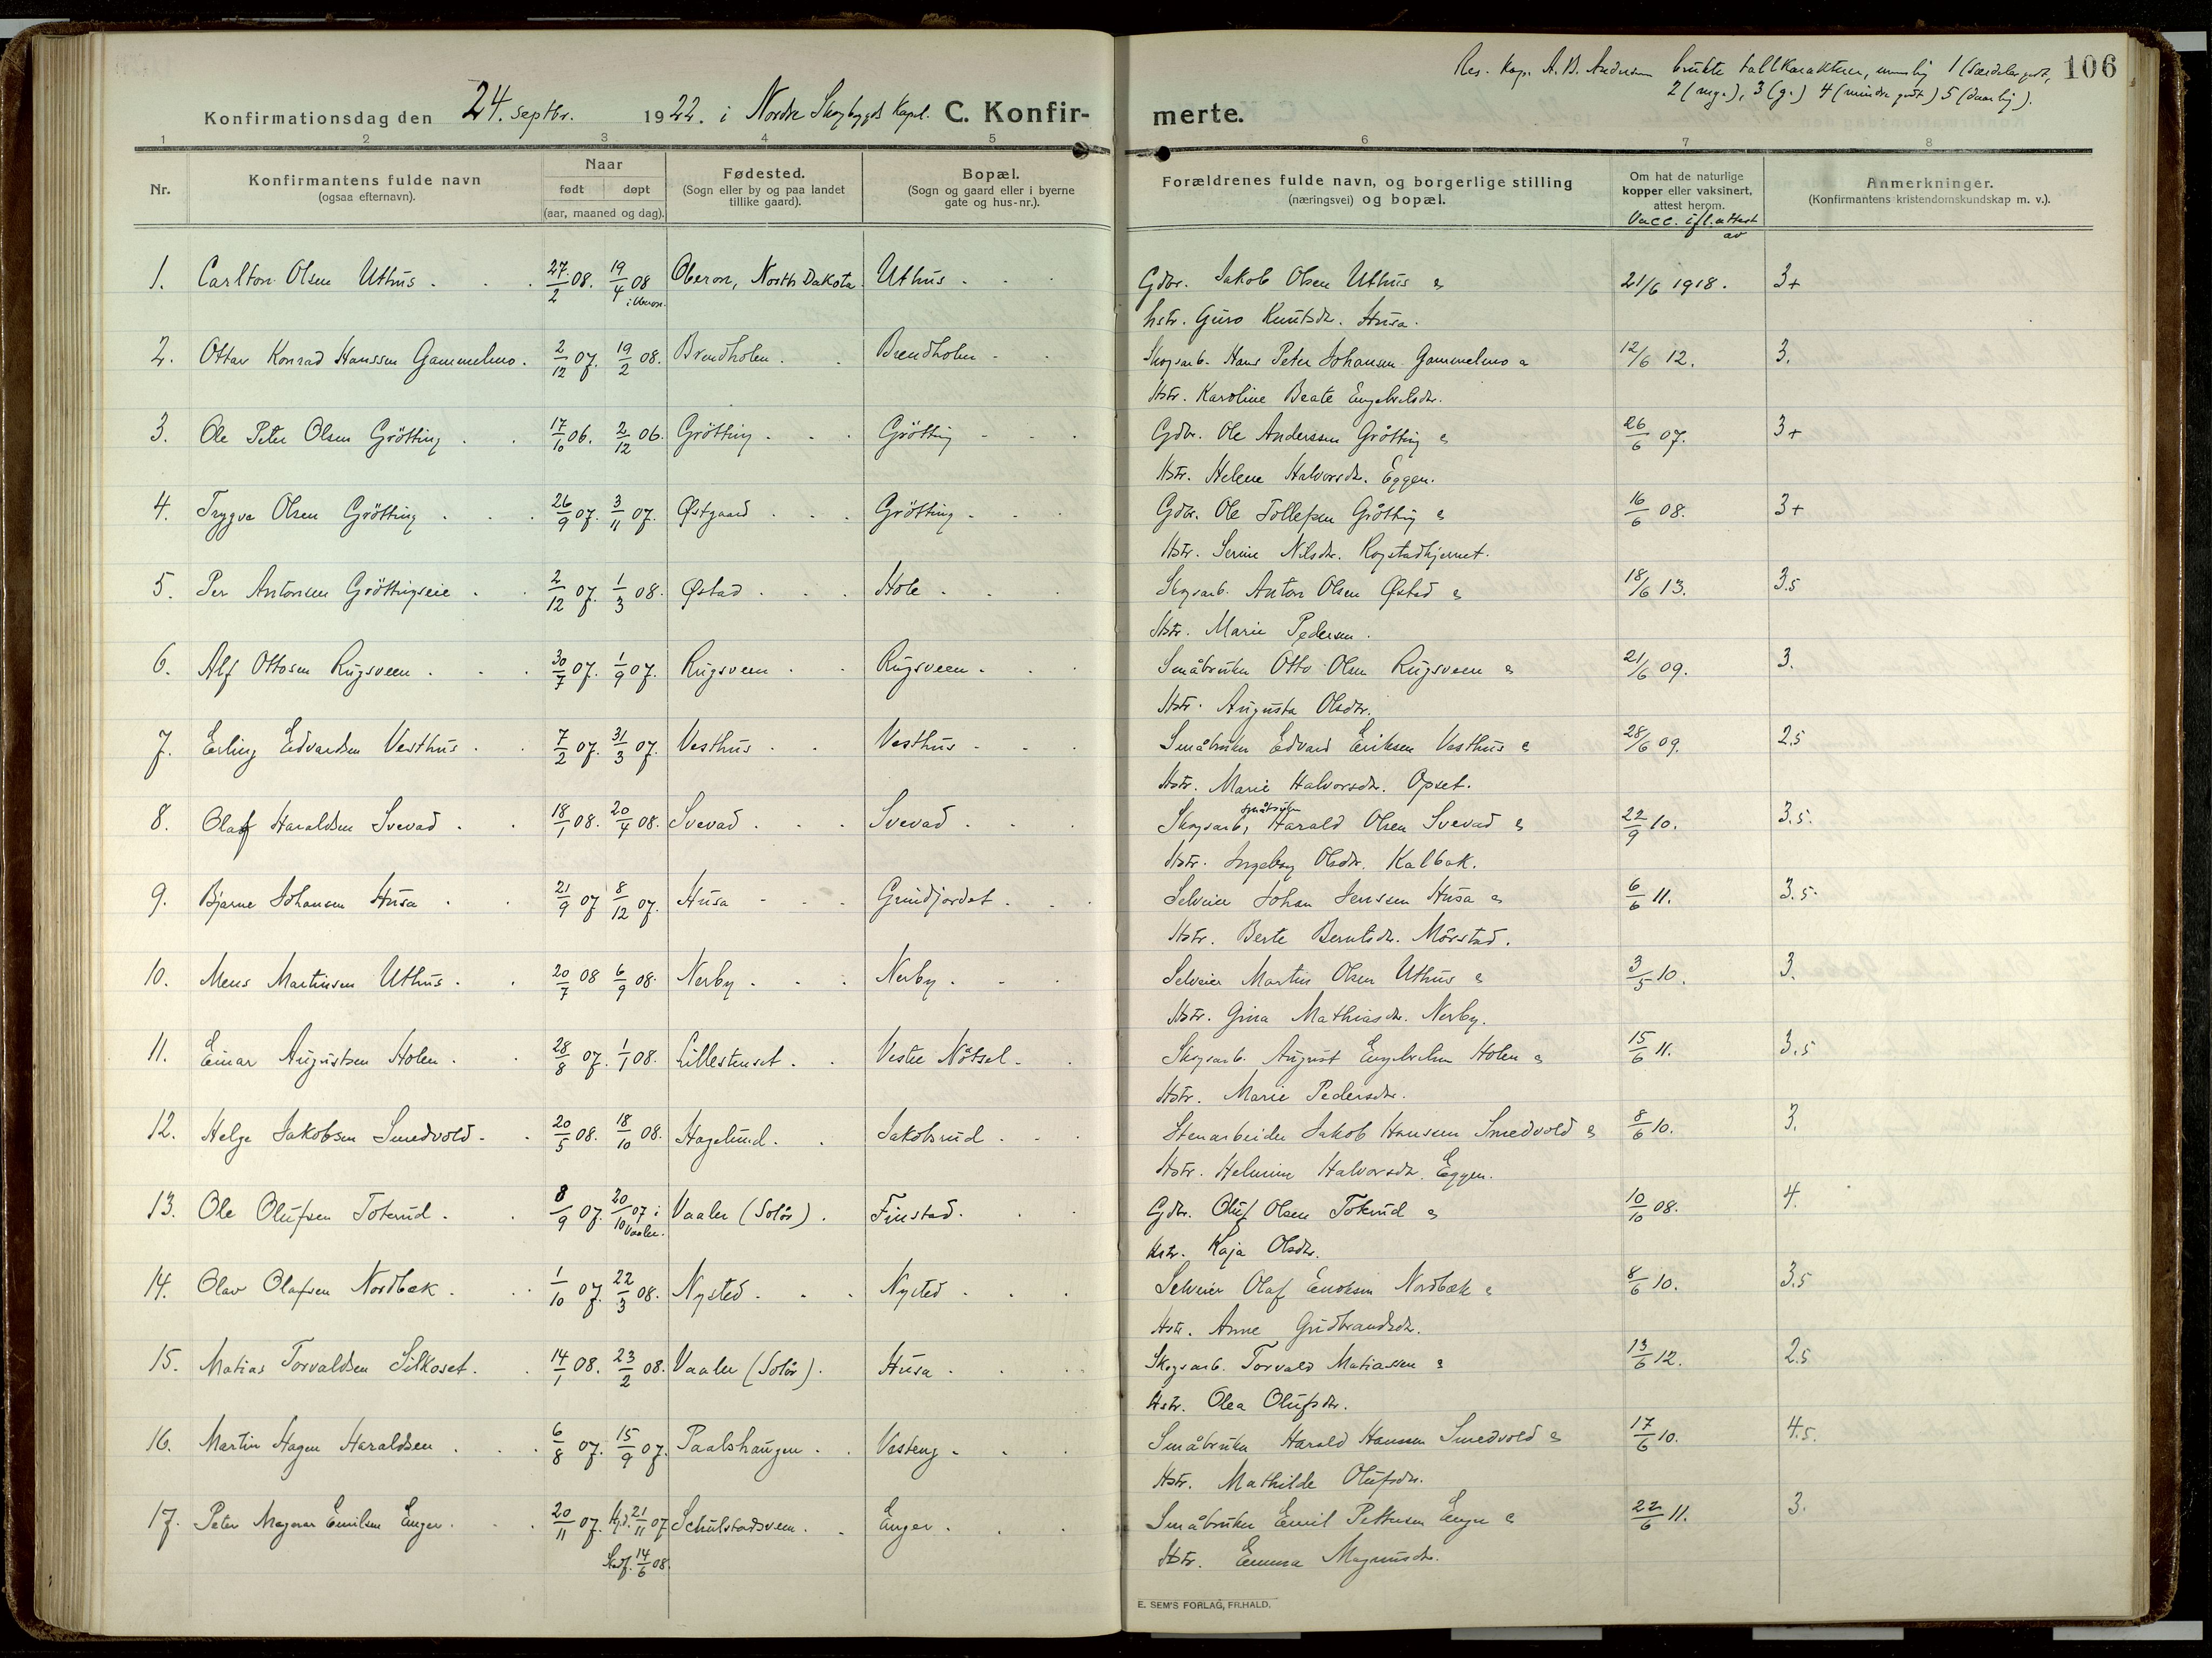 Res. Kap. A. B. Andersen brukte tallkarakterer, nemlig 1 (særdeles godt, 106
2 (mg.), 3 (g.) 4 (mindre godt) 5 (daarlig).
Konfirmationsdag den 24. septbr. 1922. i Nordre Skogbygds Kapel. C. Konfir- merte.
1 2 3 4 5 6 7 8
Nr. Konfirmantens fulde navn (ogsaa efternavn). Naar født døpt (aar, maaned og dag). Fødested. (Sogn eller by og paa landet tillike gaard). Bopæl. (Sogn og gaard eller i byerne gate og hus-nr.). Forældrenes fulde navn, og borgerlige stilling (næringsvei) og bopæl. Om hat de naturlige kopper eller vaksinert, attest herom. Vacc. ifl. attest av Anmerkninger. (Konfirmantens kristendomskundskap m. v.).
1. Carlton Olsen Uthus. 27/2 08. 19/4 08 i Oberon. Oberon, North Dakota Uthus Gdbr. Jakob Olsen Uthus & 21/6 1918. 3+
hstr. Guro Knutsdr. Husa.
2. Ottar Konrad Hanssen Gammelmo. 2/12 07. 19/2 08. Brendholen Brendholen Skogsarb. Hans Peter Johansen Gammelmo & 12/6 12. 3.
Hstr. Karoline Beate Engebretsdr.
3. Ole Peter Olsen Grötting 17/10 06. 2/12 06. Grötting Grötting Gdbr. Ole Anderssen Grötting & 26/6 07. 3+
Hstr. Helene Halvorsdr. Eggen.
4. Trygve Olsen Grötting 26/9 07. 3/11 07. Østgaard Grötting Gdbr. Ole Tollefsen Grötting & 16/6 08. 3+
Hstr. Serine Nilsdr. Rogstadkjernet.
5. Per Antonsen Gröttingseie 2/12 07. 1/3 08. Østad Hole Skogsarb. Anton Olsen Østad & 18/6 13. 3.5
Hstr. Marie Pedersen.
6. Alf Ottosen Rugsveen 30/7 07. 1/9 07. Rugsveen Rugsveen Småbruker Otto Olsen Rugsveen & 21/6 09. 3.
Hstr. Augusta Olsdr.
7. Erling Edvardsen Vesthus 7/2 07. 31/3 07. Vesthus Vesthus Småbruker Edvard Eriksen Vesthus & 28/6 09. 2.5
Hstr. Marie Halvorsdr. Opset.
8. Olaf Haraldsen Svevad 18/1 08. 20/4 08. Svevad Svevad Skogsarb, småbruker Harald Olsen Svevad & 22/9 10. 3.5.
Hstr. Ingeborg Olsdr. Kalbak.
9. Bjarne Johansen Husa 21/9 07 8/12 07. Husa Grindjordet Selveier Johan Jenssen Husa & 6/6 11. 3.5
Hstr. Berte Berntsdr. Mörstad.
10. Mens Martinsen Uthus. 20/7 08 6/9 08. Nerby Nerby Selveier Martin Olsen Uthus & 3/5 10. 3.
Hstr. Gina Mathiasdr. Nerby.
11. Einar Augustsen Holen 28/8 07. 1/1 08. Lillestenset Vestre Nötsel Skogsarb. August Engebretsen Holen & 15/6 11. 3.5
Hstr. Marie Pedersdr.
12. Helge Jakobsen Smedvold 20/5 08. 18/10 08. Hagelund Jakobsrud Stenarbeider Jakob Hansen Smedvold & 8/6 10. 3.
Hstr. Helmine Halvorsdr. Eggen.
13. Ole Olufsen Toterud 8/9 07. 20/10 07 i Vaaler. Vaaler (Solör). Finstad. Gdbr. Oluf Olsen Toterud & 10/10 08. 4.
Hstr. Kaja Olsdr.
14. Olav Olafsen Nordbæk 1/10 07. 22/3 08. Nysted Nysted Selveier Olaf Enoksen Nordbæk & 8/6 10. 3.5
Hstr. Anne Gudbrandsdr.
15. Matias Torvaldsen Silkoset. 14/1 08. 23/2 08. Vaaler (Solör). Husa Skogsarb. Torvald Matiassen & 13/6 12. 2.5
Hstr. Olea Olufsdr.
16. Martin Hagen Haraldsen 6/8 07. 15/9 07. Paalshaugen Vesteng Småbruker Harald Hanssen Smedvold & 17/6 10. 4.5.
Hstr. Mathilde Olufsdr.
17. Peter Magnar Emilsen Enger. 20/11 07. Hjd. 21/11 07 Schulstadsveen Enger Småbruker Emil Pettersen Enger & 22/6 11. 3.
Stadf. 14/6 08. Hstr. Emma Magnusdr.
E. SEM'S FORLAG, FR.HALD.